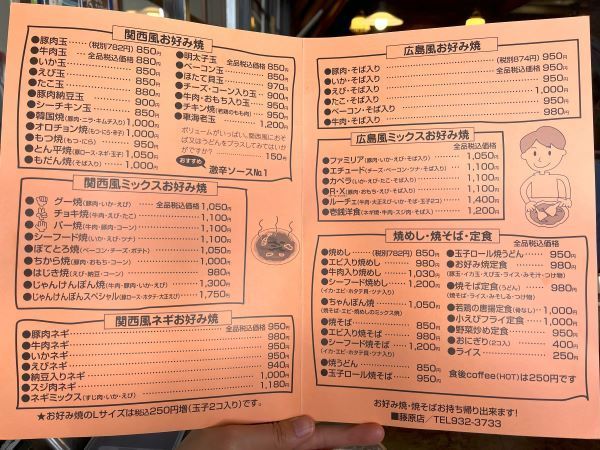 関西風お好み焼
●豚肉玉 (税別782円) 850円
全品税込価格
●牛肉玉 880円
●いか玉 850円
●えび玉 850円
●たこ玉 850円
●豚肉納豆玉 900円
●シーチキン玉 850円
●韓国焼(豚肉・ニラ・キムチ入り) 1,000円
●オロチョン焼(もつ・にら・辛子) 1,000円
●もつ焼(もつ・にら) 950円
●とん平焼(豚ロース・ネギ・玉子) 1,050円
●もだん焼(そば入り) 1,000円
全品税込価格
●明太子玉 850円
●ベーコン玉 850円
●ほたて貝玉 970円
●チーズ・コーン入り玉 900円
●牛肉・おもち入り玉 950円
●チキン焼 950円
●東海老玉 1,200円
ボリュームがいっぱい、関西風におそば又はうどんをプラスしてみてはいかがですか? 150円
おすすめ 激辛ソースNo.1
関西風ミックスお好み焼
全品税込価格
●グー焼(豚肉・いか・えび) 1,050円
●チョキ焼(牛肉・えび・たこ) 1,100円
●パー焼(牛肉・豚肉・コーン) 1,100円
●シーフード焼(いか・えび・ツナ) 1,100円
●ぽてとろ焼(ベーコン・チーズ・ポテト) 1,050円
●ちから焼(豚肉・おもち・コーン) 1,000円
●はじき焼(えび・納豆・コーン) 980円
●じゃんけんぽん焼(牛肉・豚肉・いか・えび) 1,300円
●じゃんけんぽんスペシャル(豚ロース・ホタテ・大正えび) 1,750円
関西風ネギお好み焼
全品税込価格
●豚肉ネギ 950円
●牛肉ネギ 980円
●いかネギ 950円
●えびネギ 940円
●納豆入りネギ 1,000円
●スジ肉ネギ 1,000円
●ネギミックス(すじ肉・いか・えび) 1,180円
★お好み焼のLサイズは税込250円増(玉子2コ入り)です。
広島風お好み焼
(税別874円)
●豚肉・そば入り 950円
全品税込価格
●いか・そば入り 950円
●えび・そば入り 1,000円
●たこ・そば入り 950円
●ベーコン・そば入り 950円
●牛肉・そば入り 980円
広島風ミックスお好み焼
全品税込価格
●ファミリア(豚肉・いか・えび・そば入り) 1,050円
●エチュード(チーズ・ベーコン・ツナ・そば入り) 1,100円
●カペラ(いか・えび・たこ・そば入り) 1,100円
●R・X(豚肉・おもち・えび・そば入り) 1,100円
●ルーチェ(牛肉・大正えび・いか・そば・玉子2コ) 1,400円
●壱銭洋食(ネギ焼・牛肉・スジ肉・そば入り) 1,200円
焼めし・焼そば・定食
全品税込価格
●焼めし (税別782円) 850円
●エビ入り焼めし 980円
●牛肉入り焼めし 1,030円
●シーフード焼めし 1,200円
(イカ・エビ・ホタテ貝・ツナ入り)
●ちゃんぽん焼 1,050円
(焼そば・エビ・焼めしのミックス焼)
●焼そば 850円
●エビ入り焼そば 980円
●シーフード焼そば 1,200円
(イカ・エビ・ホタテ貝・ツナ入り)
●焼うどん 850円
●玉子ロール焼そば 950円
●玉子ロール焼うどん 950円
●お好み焼定食 980円
(豚玉・イカ玉・えび玉・ライス・みそ汁・つけ物)
●焼そば定食(うどん) 980円
(焼そば・ライス・みそしる・つけ物)
●若鶏の唐揚定食(骨なし) 1,000円
●小えびフライ定食 1,000円
●野菜炒め定食 950円
●おにぎり(2コ入) 400円
●ライス 250円
食後coffee(HOT)は250円です
お好み焼・焼そばお持ち帰り出来ます!
■藤原店/TEL932-3733